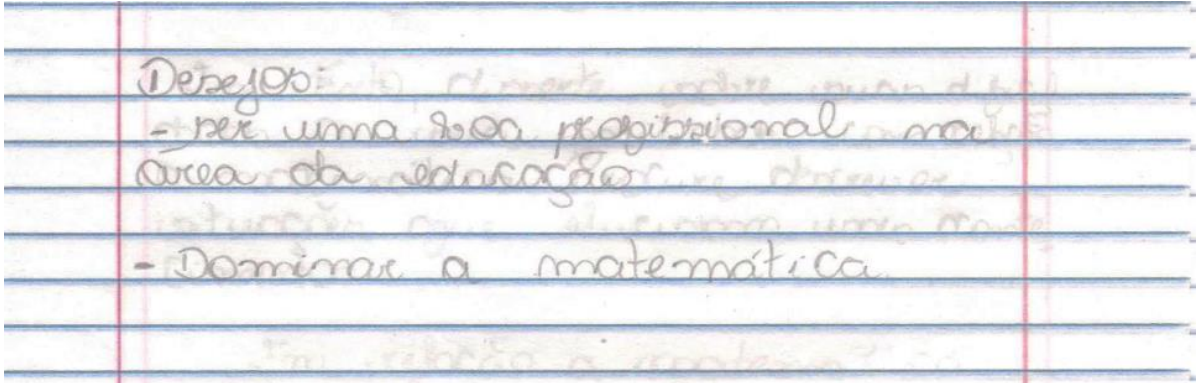 Desejos:
- ser uma boa profissional na
área da educação
- Dominar a matemática.